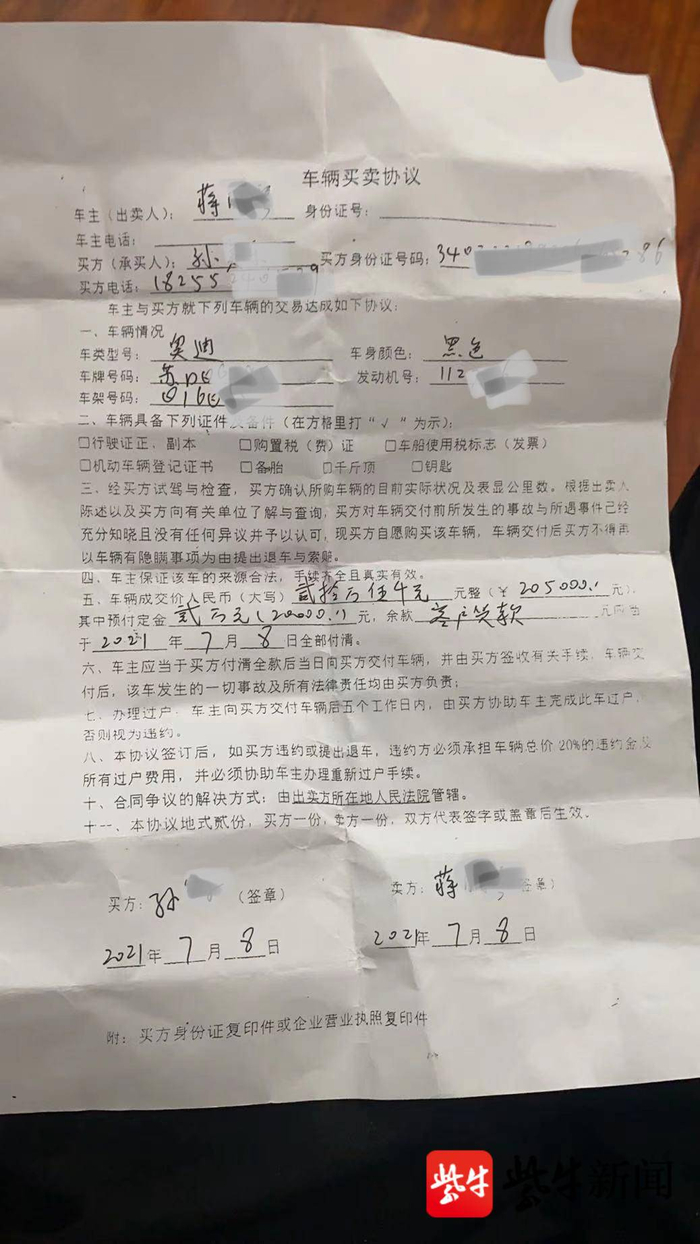 车辆买卖协议
车主（出卖人）：蒋 身份证号：
车主电话：
买方（承买人）：孙 买方身份证号码：340 286
买方电话：18255 9
车主与买方就下列车辆的交易达成如下协议：
一、车辆情况
车类型号：奥迪 车身颜色：黑色
车牌号码：苏D 发动机号：112
车架号码：
二、车辆具备下列证件及备件（在方格里打“√”为示）：
□行驶证正、副本 □购置税（费）证 □车船使用税标志（发票）
□机动车辆登记证书 □备胎 □千斤顶 □钥匙
三、经买方试驾与检查，买方确认所购车辆的目前实际状况及表显公里数。根据出卖人
陈述以及买方向有关单位了解与查询，买方对车辆交付前所发生的事故与所遇事件已经
充分知晓且没有任何异议并予以认可，现买方自愿购买该车辆，车辆交付后买方不得再
以车辆有隐瞒事项为由提出退车与索赔。
四、车主保证该车的来源合法，手续齐全且真实有效。
五、车辆成交价人民币（大写）贰拾万伍仟元 元整（¥ 205000.）元），
其中预付定金 贰万元（20000.）元，余款 客户贷款 元应当
于 2021 年 7 月 8 日全部付清。
六、车主应当于买方付清全款后当日向买方交付车辆，并由买方签收有关手续，车辆交
付后，该车发生的一切事故及所有法律责任均由买方负责；
七、办理过户，车主向买方交付车辆后五个工作日内，由买方协助车主完成此车过户，
否则视为违约。
八、本协议签订后，如买方违约或提出退车，违约方必须承担车辆总价20%的违约金及
所有过户费用，并必须协助车主办理重新过户手续。
十、合同争议的解决方式：由出卖方所在地人民法院管辖。
十一、本协议地式贰份，买方一份，卖方一份，双方代表签字或盖章后生效．
买方：孙 （签章） 卖方：蒋 签章）
2021年 7 月 8 日 2021年 7 月 8 日
附：买方身份证复印件或企业营业执照复印件
紫牛 紫牛新闻